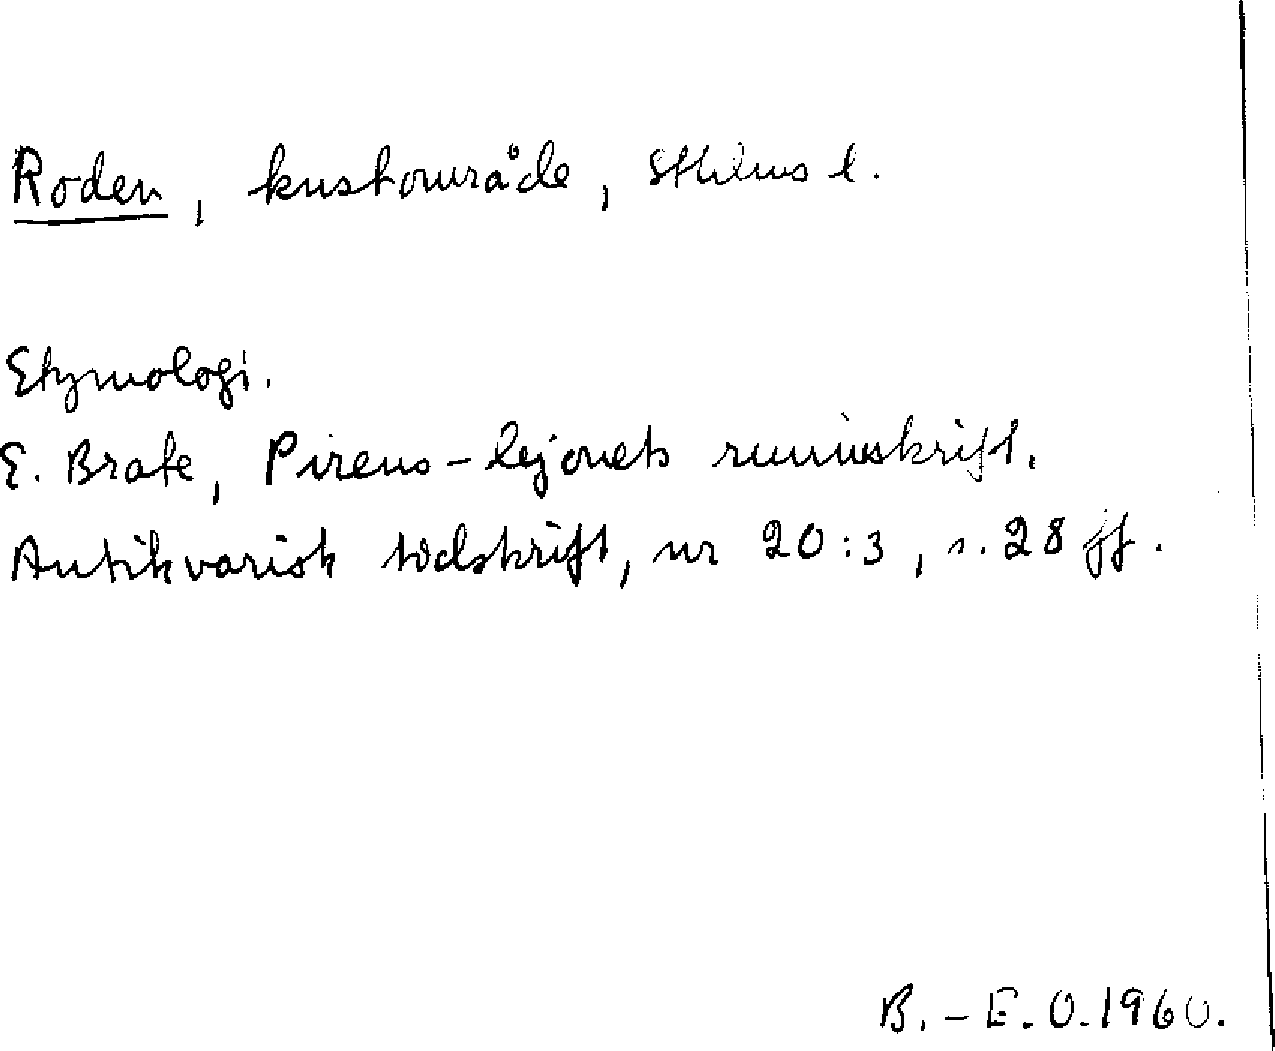 Roden, kustområde, Sthlms l.
Etymologi.
E. Brate, Pireus-lejonets runinskrift.
Antikvarisk tidskrift, nr 20:3, s. 28 ff.
B.-E. O. 1960.